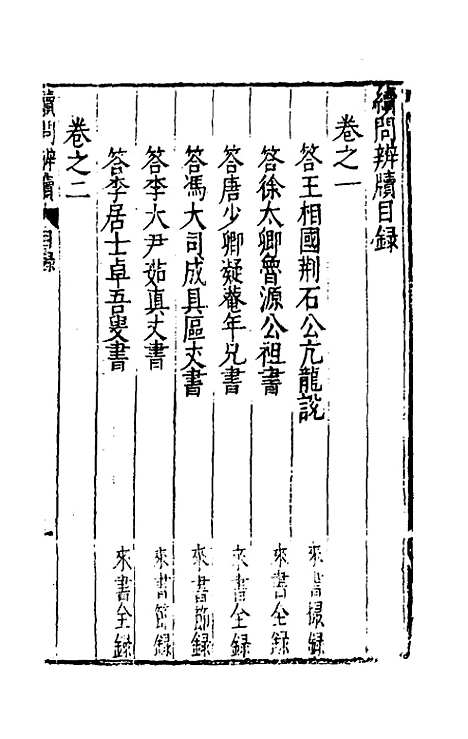 續問辨牘目録
卷之一
答王相國荆石公亢龍說 來書撮録
答徐太卿魯源公祖書 來書全録
答唐少卿凝菴年兄書 來書全録
答馮大司成具區丈書 來書節録
答李大尹茹真丈書 來書節録
答李居士卓吾叟書 來書全録
卷之二
續問辨牘 目録